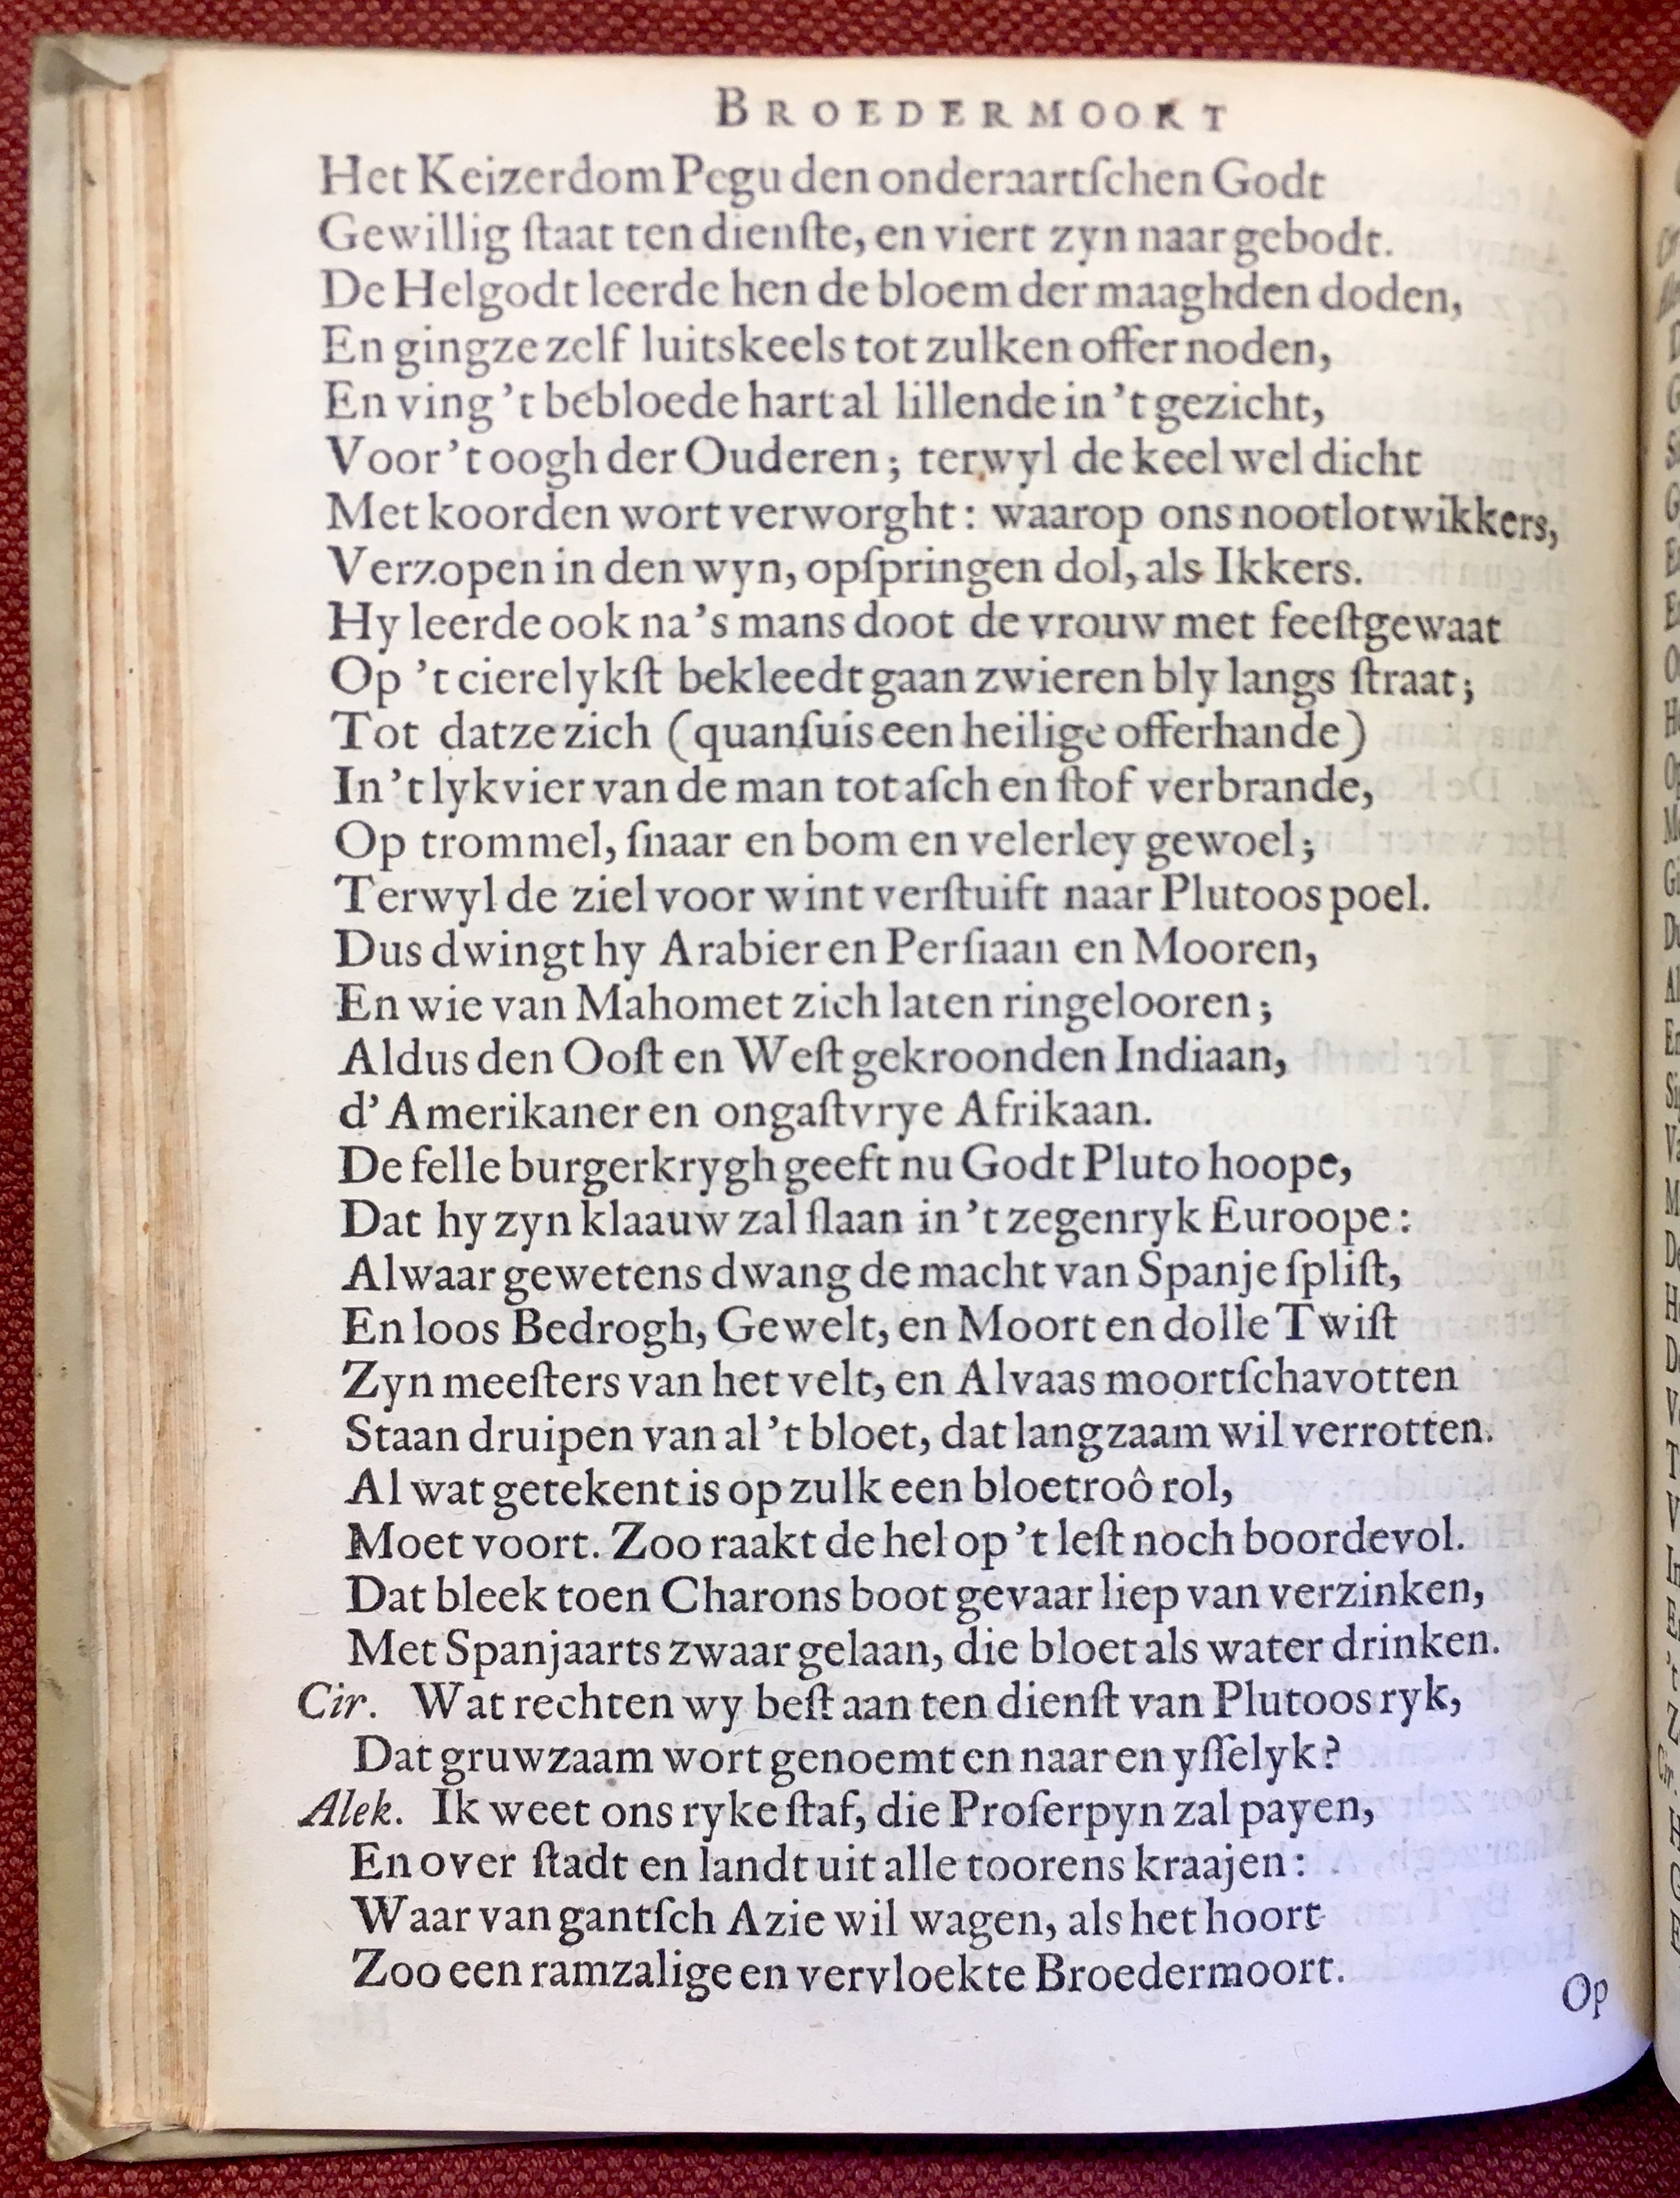 BROEDERMOORT
Het Keizerdom Pegu den onderaartſchen Godt
Gewillig ſtaat ten dienſte, en viert zyn naar gebodt.
De Helgodt leerde hen de bloem der maaghden doden,
En gingze zelf luitskeels tot zulken offer noden,
En ving 't bebloede hart al lillende in 't gezicht,
Voor 't oogh der Ouderen; terwyl de keel wel dicht
Met koorden wort verworght: waarop ons nootlotwikkers,
Verzopen in den wyn, opſpringen dol, als Ikkers.
Hy leerde ook na 's mans doot de vrouw met feeſtgewaat
Op 't cierelykſt bekleedt gaan zwieren bly langs ſtraat;
Tot datze zich (quanſuis een heilige offerhande)
In 't lykvier van de man tot aſch en ſtof verbrande,
Op trommel, ſnaar en bom en velerley gewoel;
Terwyl de ziel voor wint verſtuift naar Plutoos poel.
Dus dwingt hy Arabier en Perſiaan en Mooren,
En wie van Mahomet zich laten ringelooren;
Aldus den Ooſt en Weſt gekroonden Indiaan,
d' Amerikaner en ongaſtvrye Afrikaan.
De felle burgerkrygh geeft nu Godt Pluto hoope,
Dat hy zyn klaauw zal ſlaan in 't zegenryk Euroope:
Alwaar gewetens dwang de macht van Spanje ſpliſt,
En loos Bedrogh, Gewelt, en Moort en dolle Twiſt
Zyn meeſters van het velt, en Alvaas moortſchavotten
Staan druipen van al 't bloet, dat langzaam wil verrotten.
Al wat getekent is op zulk een bloetroô rol,
Moet voort. Zoo raakt de hel op 't leſt noch boordevol.
Dat bleek toen Charons boot gevaar liep van verzinken,
Met Spanjaarts zwaar gelaan, die bloet als water drinken.
Cir. Wat rechten wy beſt aan ten dienſt van Plutoos ryk,
Dat gruwzaam wort genoemt en naar en yſſelyk?
Alek. Ik weet ons ryke ſtaf, die Proſerpyn zal payen,
En over ſtadt en landt uit alle toorens kraajen:
Waar van gantſch Azie wil wagen, als het hoort
Zoo een ramzalige en vervloekte Broedermoort.
Op